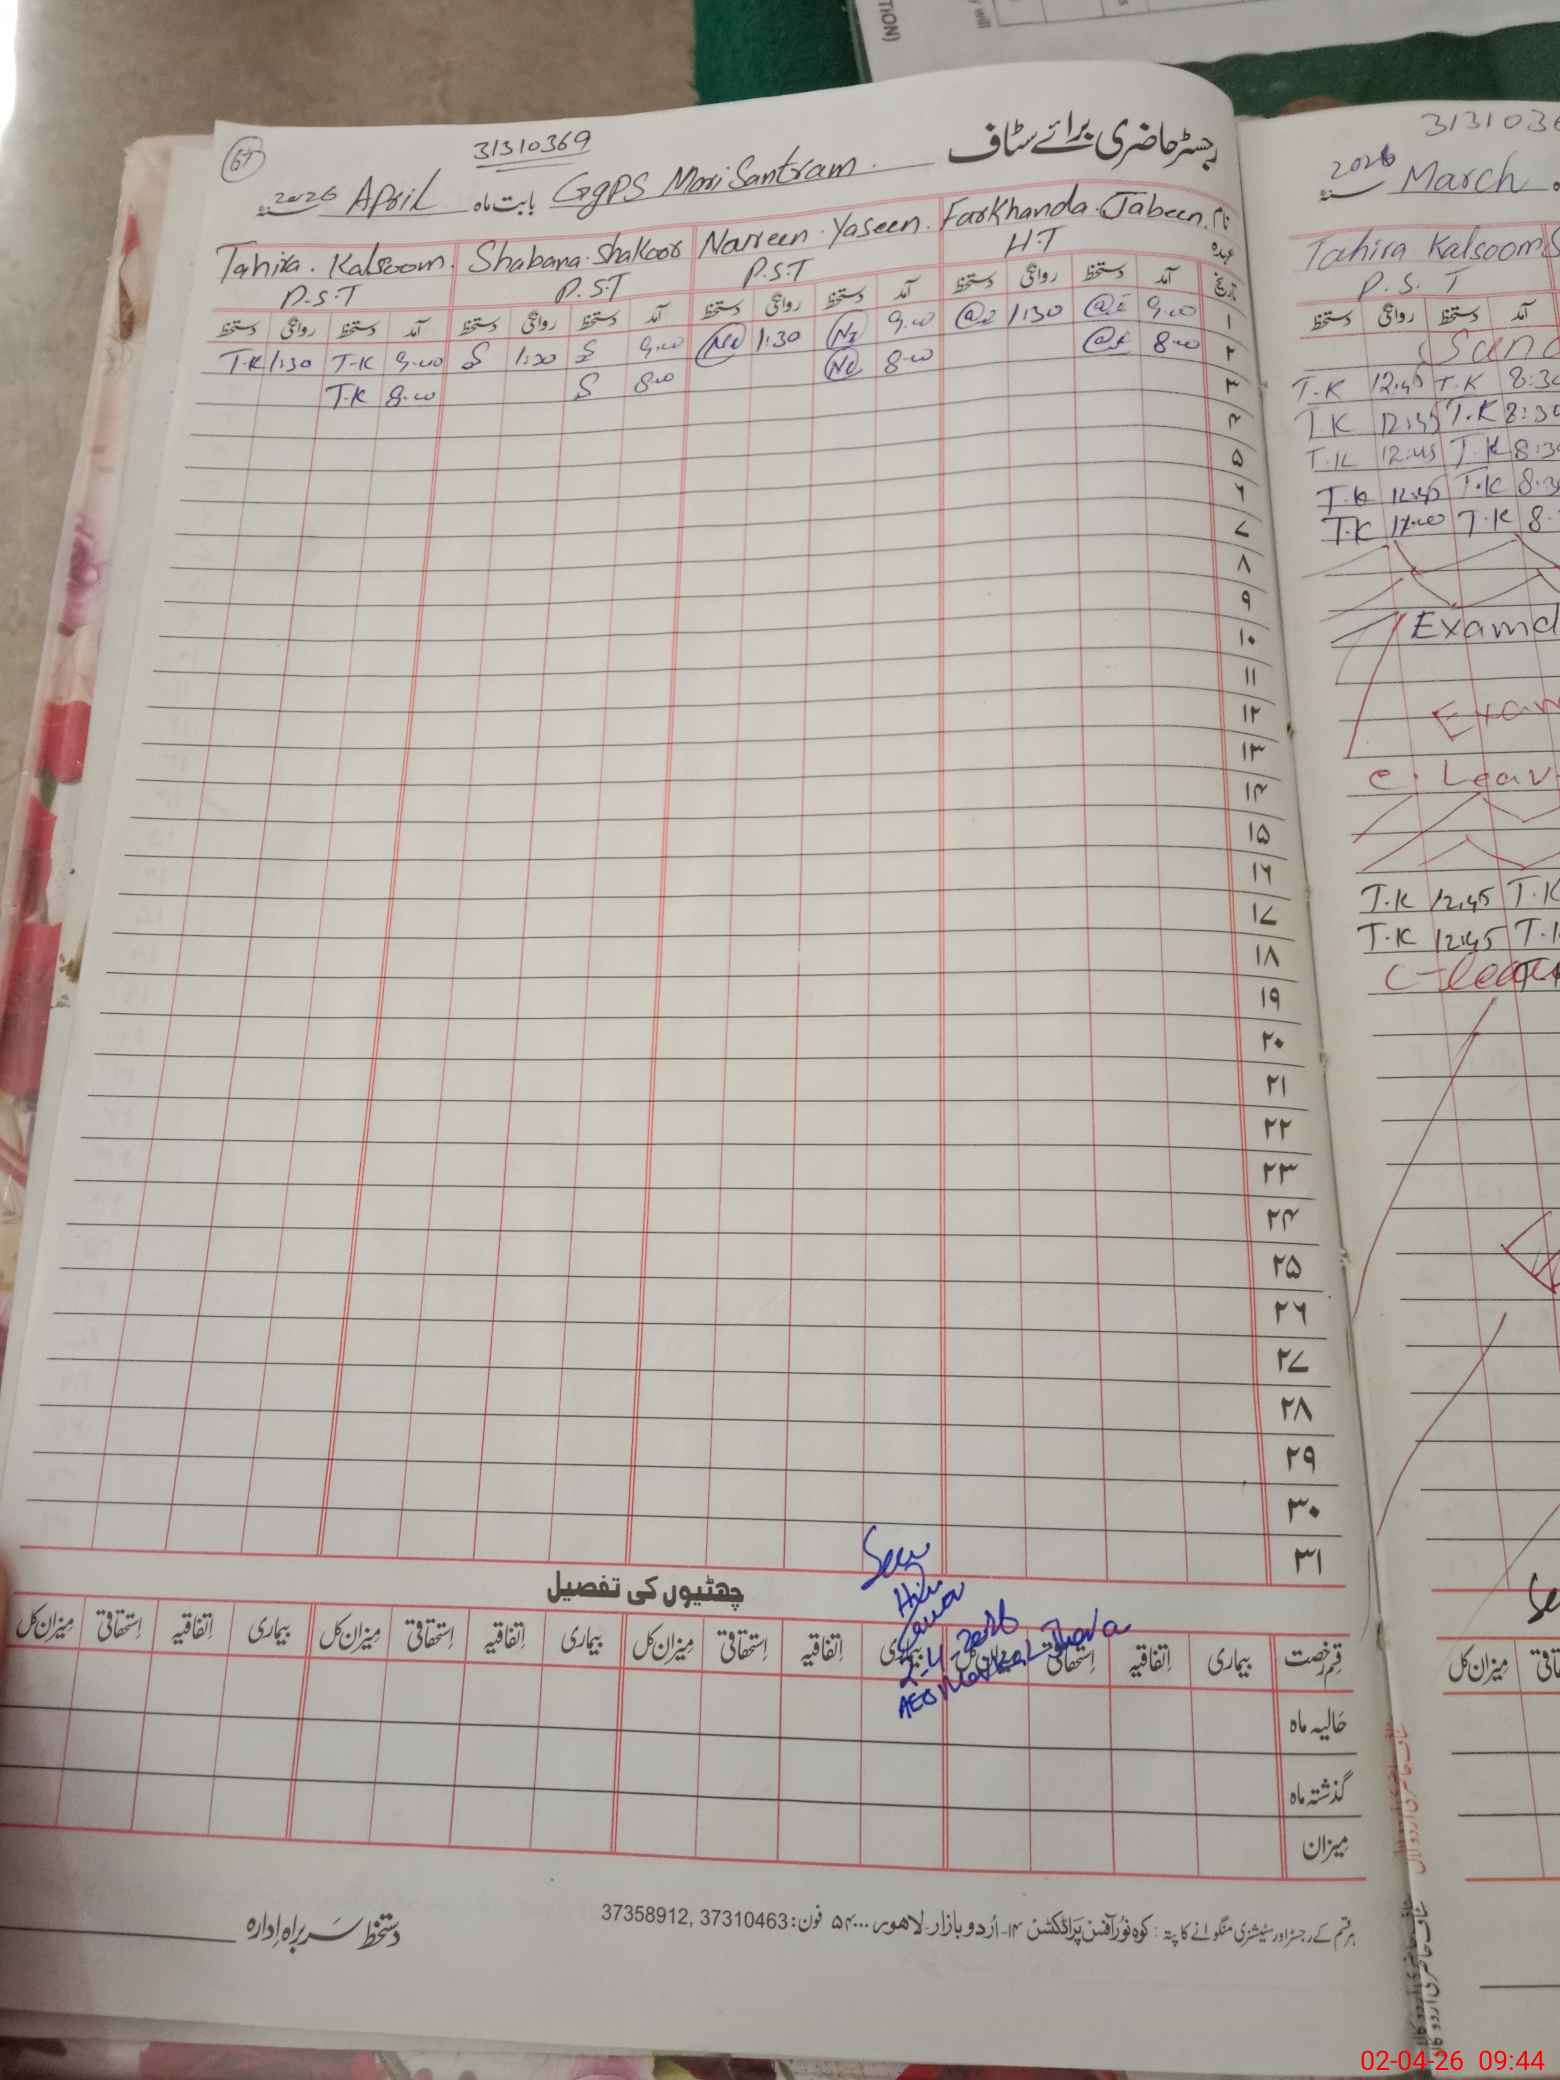 رجسٹر حاضری برائے سٹاف
31310369
GgPS Mori Santram. بابت ماہ April 2026
نام Farkhanda. Jabeen. Nasreen. Yaseen. Shabana. Shakoor Tahira. Kalsoom.
عہدہ H.T P.S.T P.S.T P.S.T
تاریخ آمد دستخط روانگی دستخط آمد دستخط روانگی دستخط آمد دستخط روانگی دستخط آمد دستخط روانگی دستخط
۱ 9.00 1:30 9.00 1:30 9.00 S 1:30 S 9.00 T.K 1:30 T.K
۲ 8.00 8.00 8.00 S 8.00 T.K
۳
۴
۵
۶
۷
۸
۹
۱۰
۱۱
۱۲
۱۳
۱۴
۱۵
۱۶
۱۷
۱۸
۱۹
۲۰
۲۱
۲۲
۲۳
۲۴
۲۵
۲۶
۲۷
۲۸
۲۹
۳۰
۳۱
Seen
2-4-2026
AEO Markaz
چھٹیوں کی تفصیل
قسم رخصت بیماری اتفاقیہ استحقاقی میزان کل بیماری اتفاقیہ استحقاقی میزان کل بیماری اتفاقیہ استحقاقی میزان کل بیماری اتفاقیہ استحقاقی میزان کل
حالیہ ماہ
گذشتہ ماہ
میزان
ہر قسم کے رجسٹر اور سٹیشنری منگوانے کا پتہ: کوہ نور آفسن پراڈکشن ۱۴- اردو بازار- لاہور ۵۴۰۰۰ فون: 37310463 ,37358912
دستخط سربراہ ادارہ
313103
March 2026
Tahira Kalsoom
P.S.T
آمد دستخط روانگی دستخط
8:30 T.K 12:45 T.K
8:30 T.K 12:45 T.K
8:3 T.K 12:45 T.K
8:3 T.K 12:45 T.K
8: T.K 12:00 T.K
Exam
Exam
C. Leav
T.K 12:45 T.K
T.K 12:45 T.K
C-leave
میزان کل
02-04-26 09:44